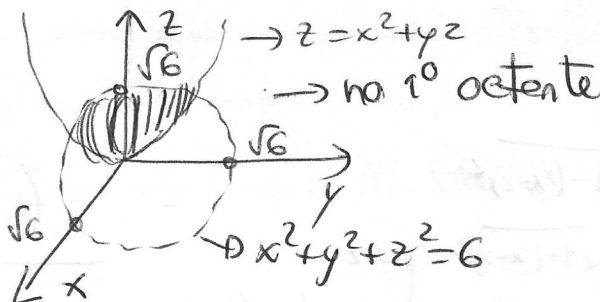 z → z = x² + y2
√6 → no 1º octente
√6
y
√6
x → x² + y² + z² = 6